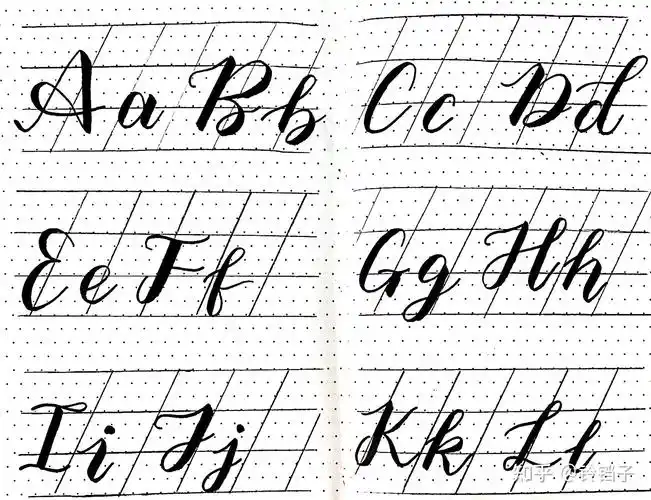 Aa Bb
Cc Dd
Ee Ff
Gg Hh
Ii Jj
Kk Ll
知乎 @铃铛子